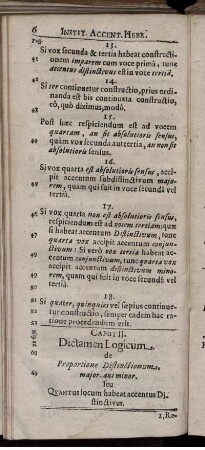 6 INSTIT. ACCENT. HEBR.
13.
Si vox secunda & tertia habeat constructi-
onem imparem cum voce primâ, tunc
accentus distinctivus est in voce tertiâ,
14.
Si ter continuetur constructio, prius ordi-
nanda est bis continuata constructio,
eô, quô diximus, modô.
15.
Post hæc respiciendum est ad vocem
quartam, an sit absolutioris sensus,
quàm vox secunda aut tertia, an non sit
absolutioris sensus.
16.
Si vox quarta est absolutioris sensus, acci-
pit accentum subdistinctivum majo-
rem, quam qui fuit in voce secundâ vel
tertiâ.
17.
Si vox quarta non est absolutioris sensus,
respiciendum est ad vocem tertiam: quæ
si habeat accentum Distinctivum, tunc
quarta vox accipit accentum conjun-
ctivum: Si verò vox tertia habeat ac-
centum conjunctivum, tunc quarta vox
accipit accentum distinctivum mino-
rem, quam qui fuit in voce secundâ vel
tertiâ.
18.
Si quater, quinquiesvel sepius continue-
tur constructio, semper eadem hac ra-
tione procedendum erit.
CAPUT II.
Dictamen Logicum
de
Proportione Distinctionum
major. aut minor.
seu
QUANTUS locum habeat accentus Di-
stinctivus.
1, Ro-